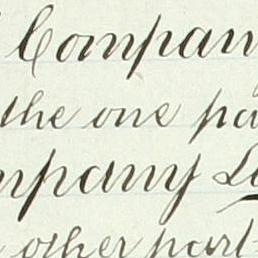 Compan
the one pa
mpany L
other part